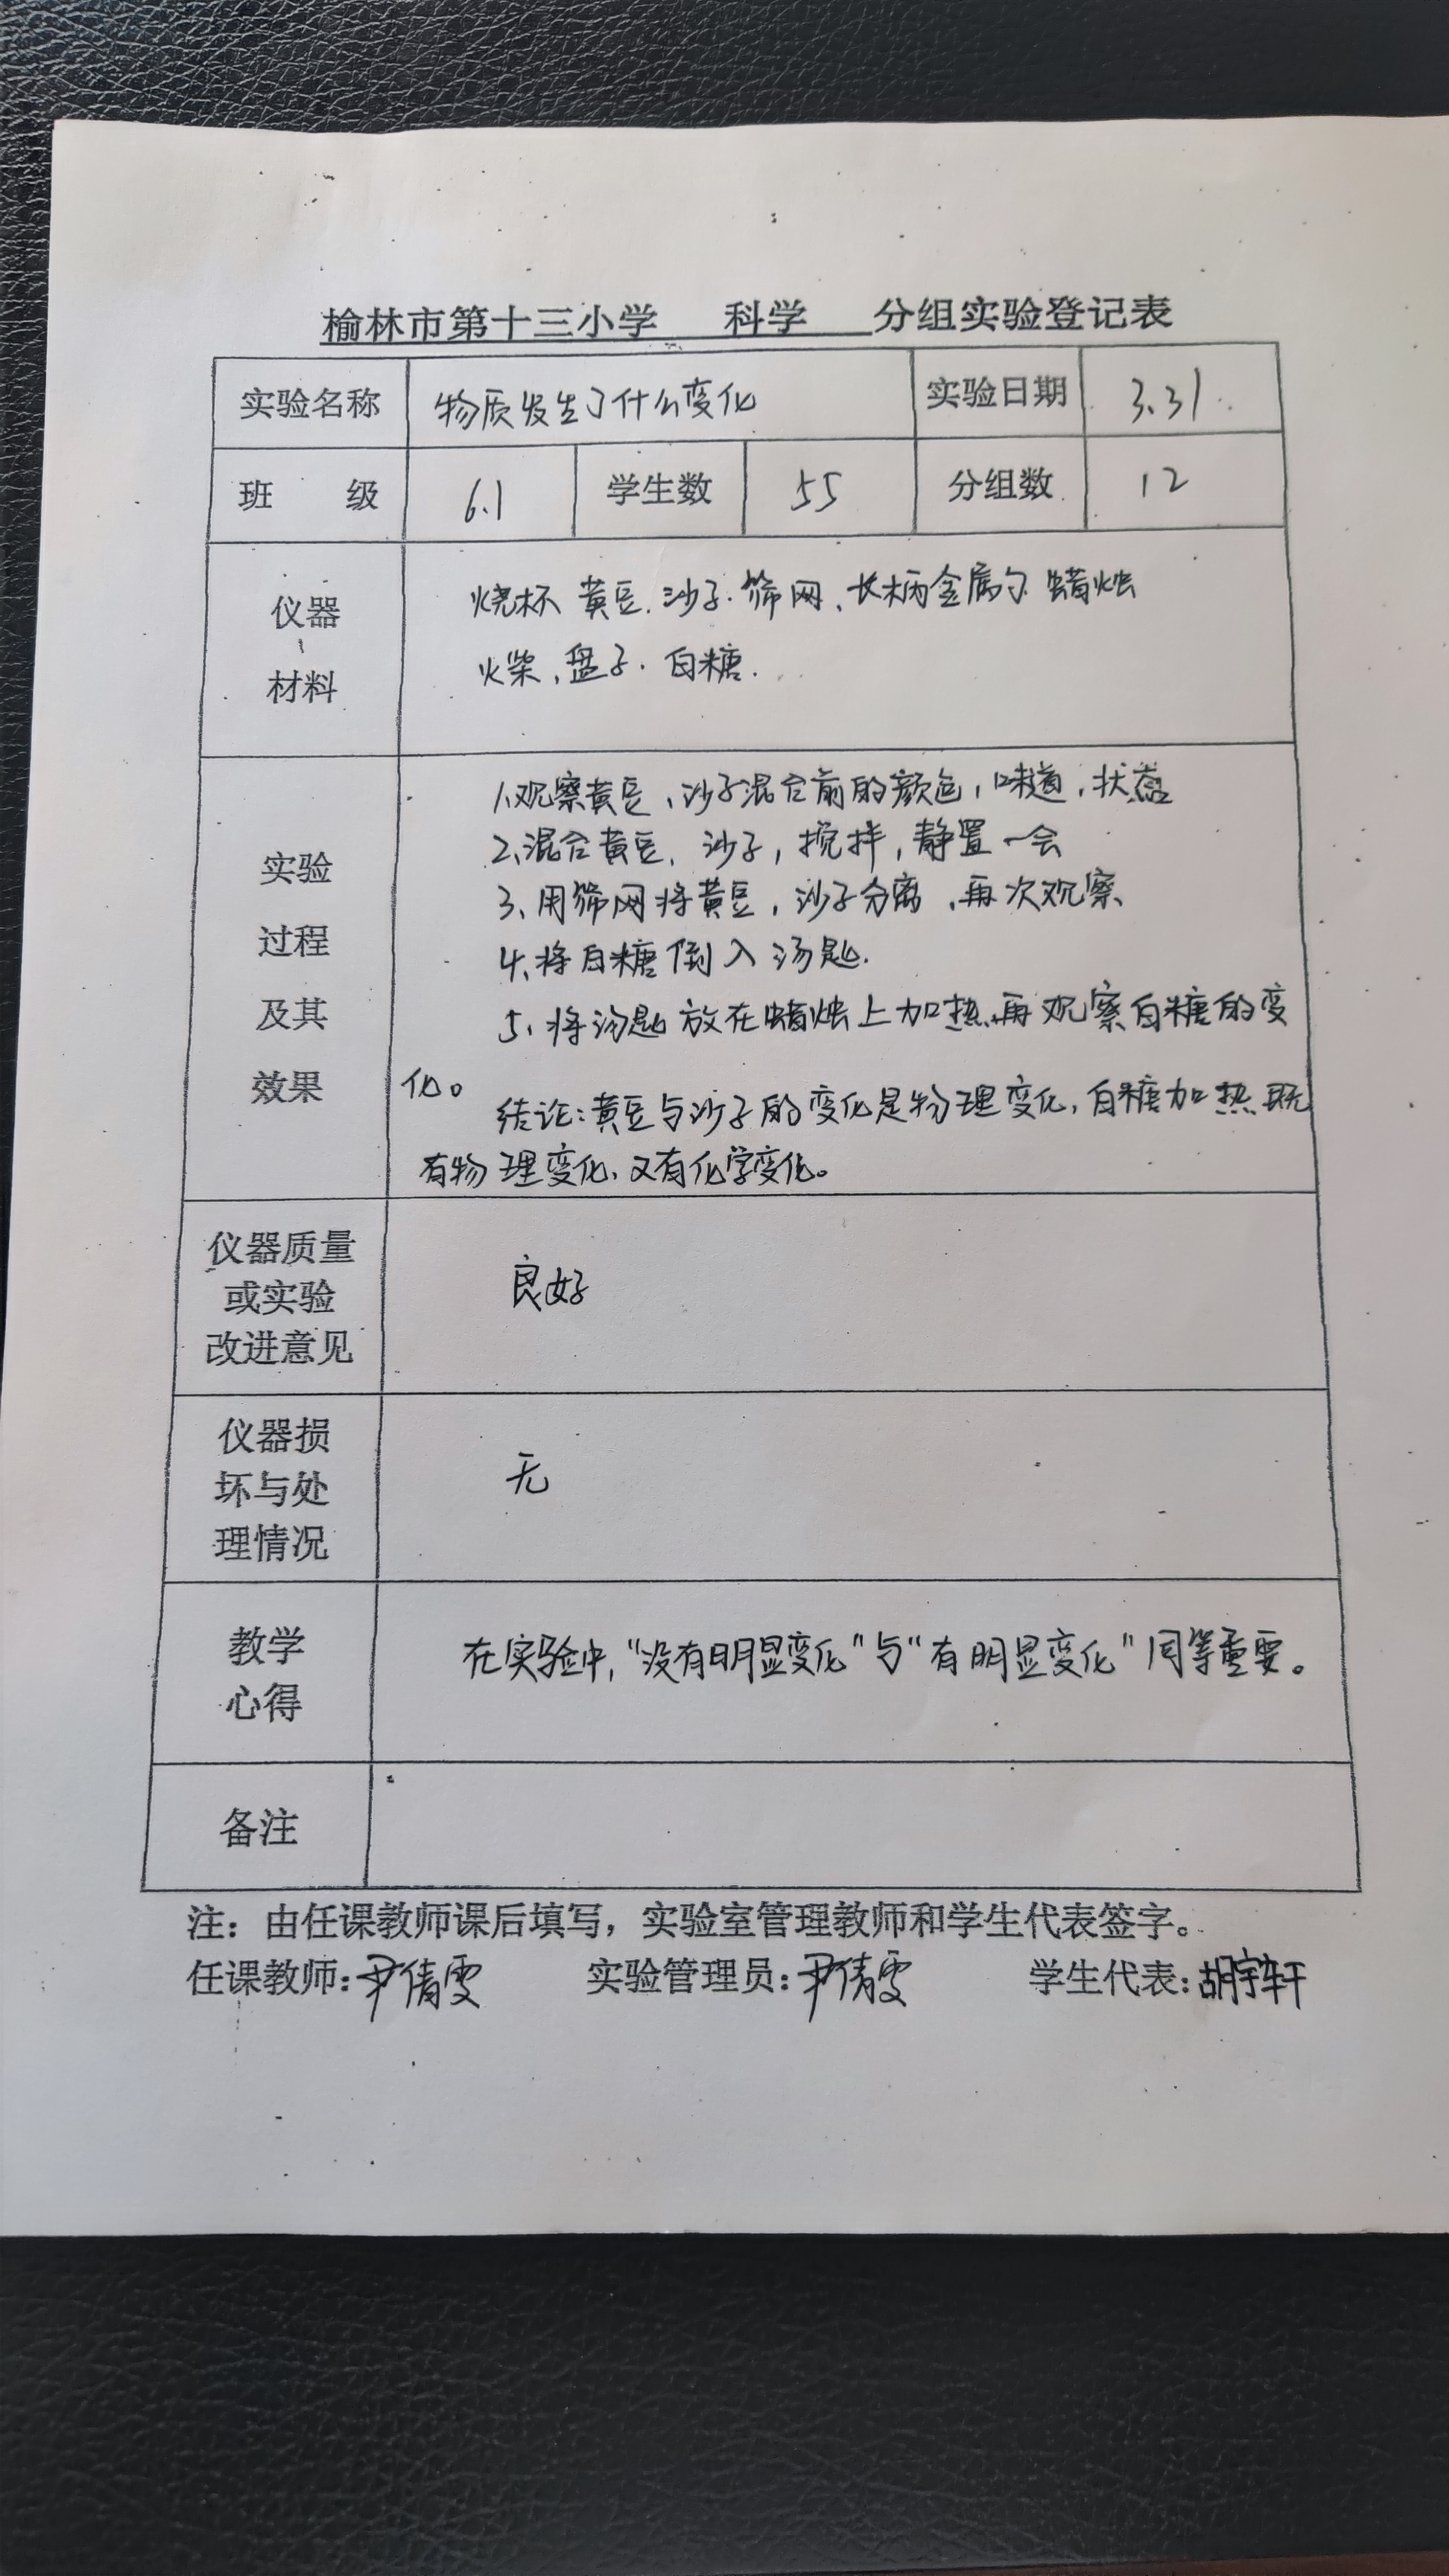 榆林市第十三小学 科学 分组实验登记表
实验名称 物质发生了什么变化 实验日期 3.31.
班 级 6.1 学生数 55 分组数 12
仪器
、
材料
烧杯 黄豆.沙子.筛网、长柄金属勺 蜡烛
火柴、盘子.白糖.
实验
过程
及其
效果
1.观察黄豆、沙子混合前的颜色,味道,状态
2、混合黄豆、沙子,搅拌,静置一会
3、用筛网将黄豆,沙子分离、再次观察、
4、将白糖倒入汤匙.
5、将汤匙放在蜡烛上加热、再观察白糖的变
化。
结论:黄豆与沙子的变化是物理变化,白糖加热既
有物理变化、又有化学变化。
仪器质量
或实验
改进意见
良好
仪器损
坏与处
理情况
无
教学
心得
在实验中,“没有明显变化”与“有明显变化”同等重要。
备注
注：由任课教师课后填写，实验室管理教师和学生代表签字。
任课教师:尹倩雯 实验管理员:尹倩雯 学生代表:胡宇轩